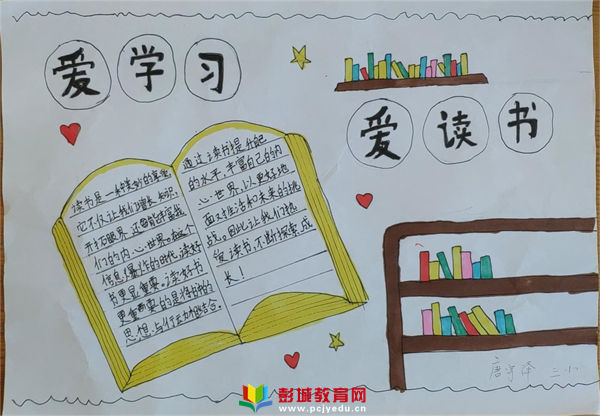 爱学习
爱读书
读书是一种美妙的享受
它不仅让我们增长知识,
开拓眼界,还能
们的内心世界。在这个
信息爆炸的时代,读好
书更显重要。读好书
更重要的是将书中的
思想与行动相结合。
通过读书提升自己
的水平,丰富自己的内
心世界,以更好地
面对生活和未来的挑
战。因此让我们热
爱读书,不断探索成
长!
唐宇泽 三
彭城教育网
www.pcjyedu.cn